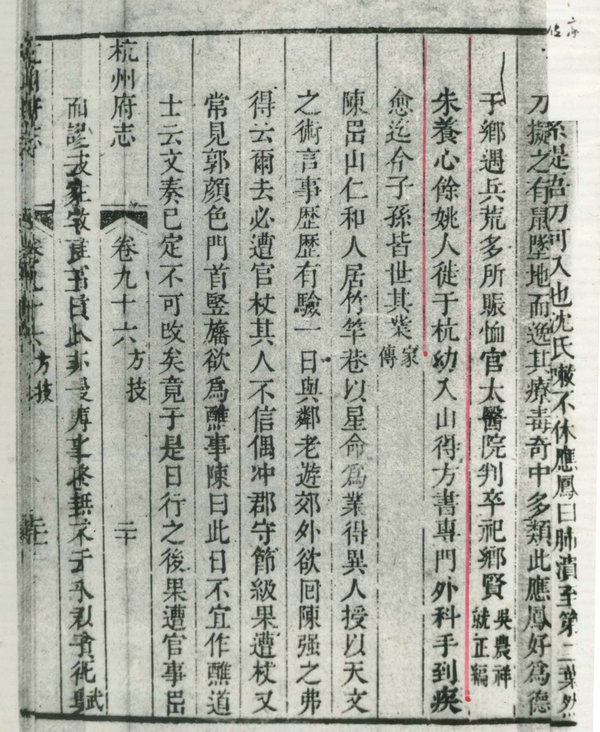 是否刀可入也沈氏嗽不休應鳳曰肺潰至第二葉然
刀擬之有鼠墜地而逸其療毒奇中多類此應鳳好為德
于鄉遇兵荒多所賑恤官太醫院判卒祀鄉賢吳農祥就正編
朱養心餘姚人徙于杭幼入山得方書專門外科手到疾
愈迄今子孫皆世其業家傳
陳岊山仁和人居竹竿巷以星命爲業得異人授以天文
之術言事歷歷有驗一日與鄰老遊郊外欲回陳强之弗
得云爾去必遭官杖其人不信偶冲郡守節級果遭杖又
常見郭顏色門首竪旛欲爲醮事陳曰此日不宜作醮道
士云文奏已定不可改矣竟于是日行之後果遭官事岊
杭州府志 卷九十六 方技 二十
方技